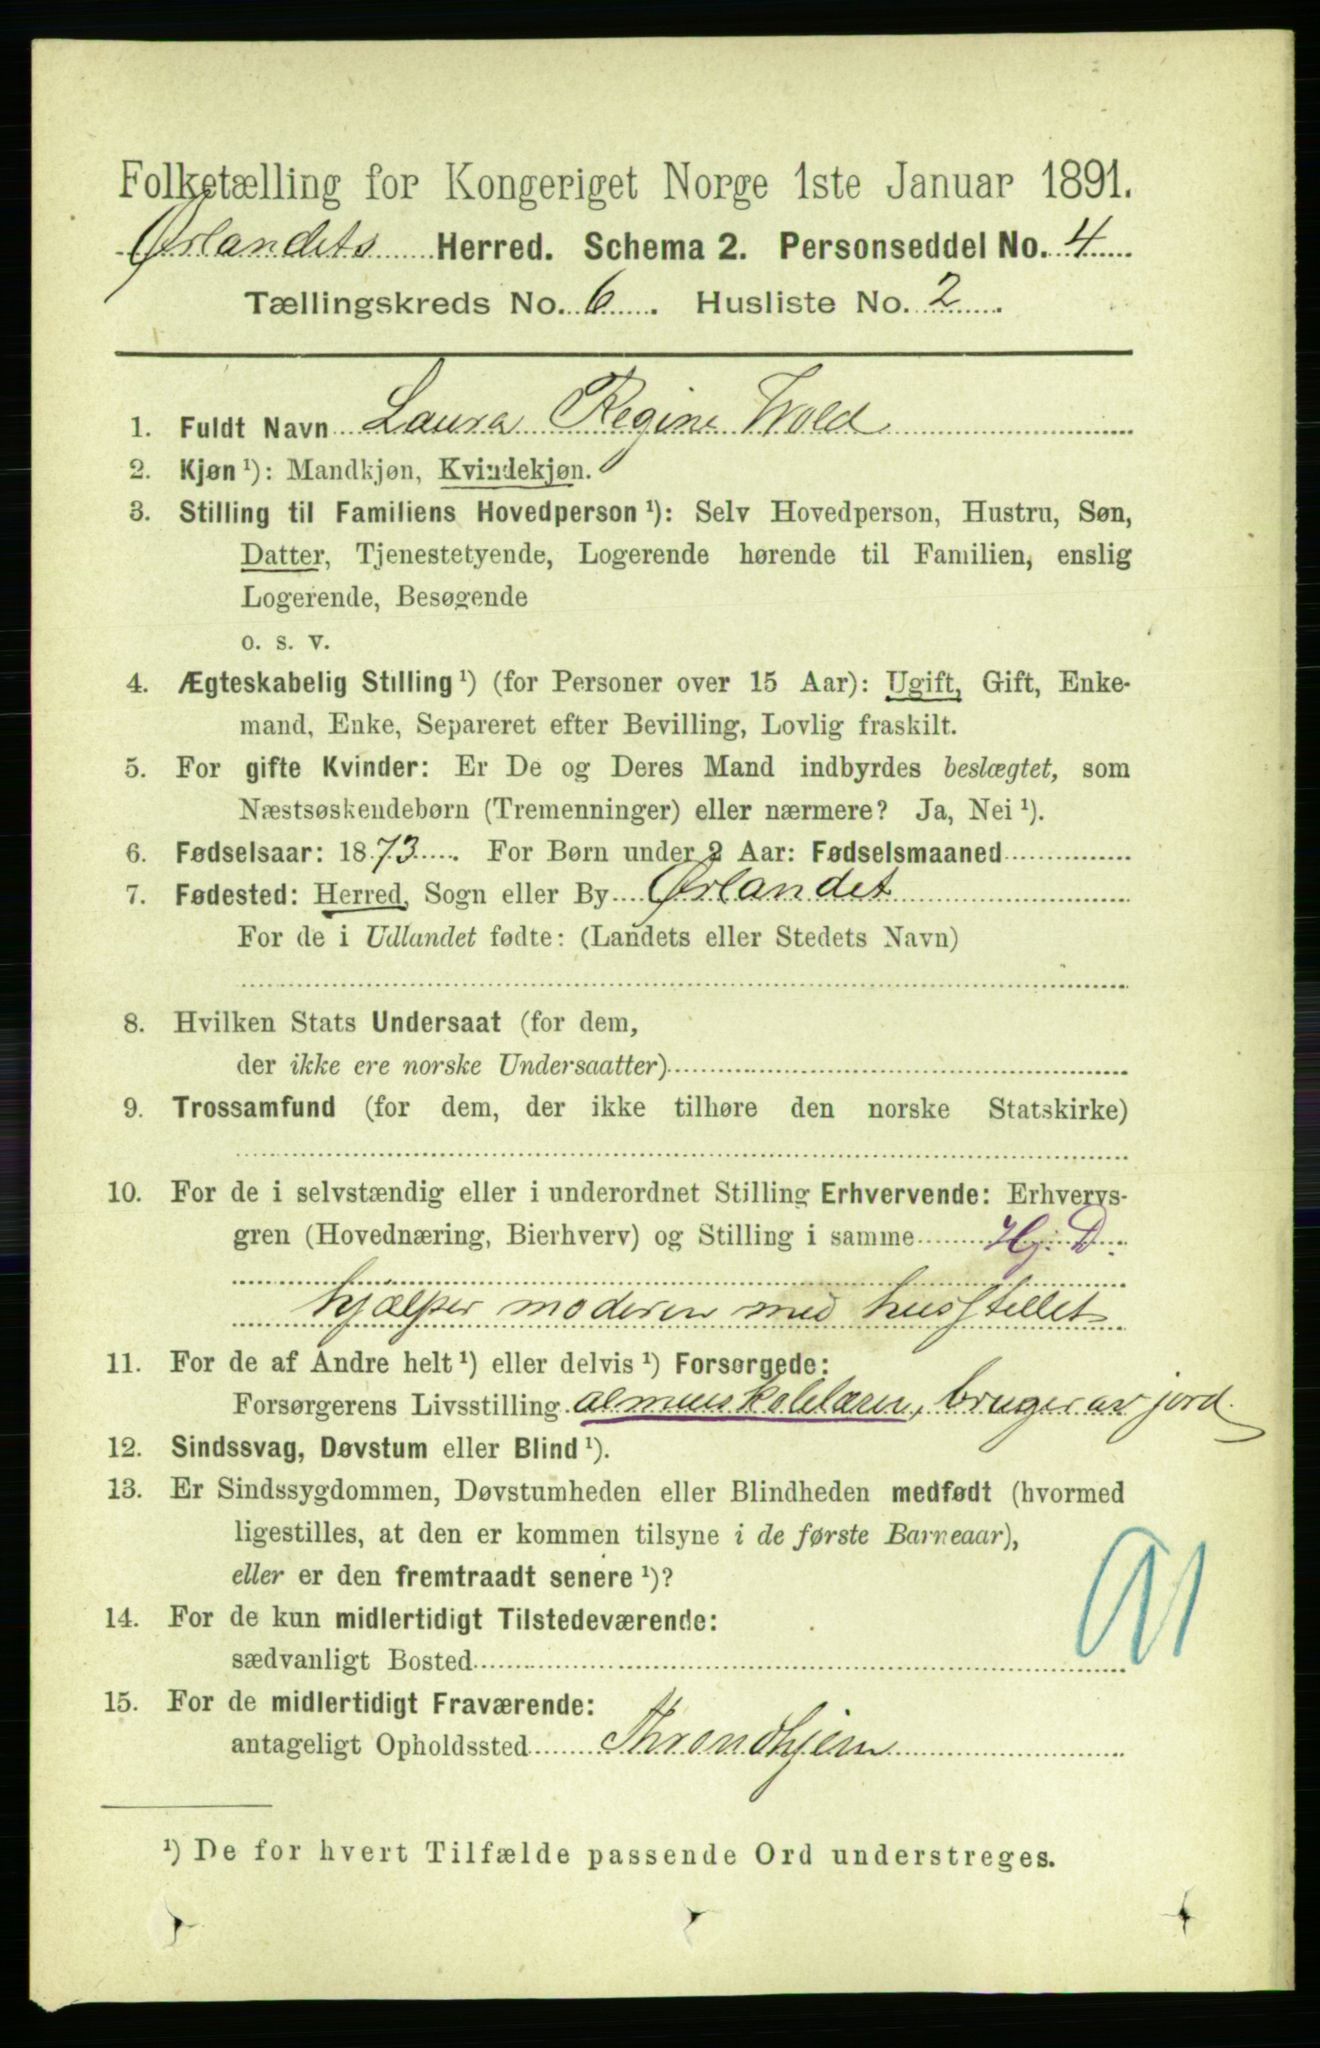 Folketælling for Kongeriget Norge 1ste Januar 1891.
Ørlandets Herred. Schema 2. Personseddel No. 4
Tællingskreds No. 6. Husliste No. 2.
1. Fuldt Navn Laura Regine Wold
2. Kjøn ¹): Mandkjøn, Kvindekjøn.
3. Stilling til Familiens Hovedperson ¹): Selv Hovedperson, Hustru, Søn,
Datter, Tjenestetyende, Logerende hørende til Familien, enslig
Logerende, Besøgende
o. s. v.
4. Ægteskabelig Stilling ¹) (for Personer over 15 Aar): Ugift, Gift, Enke-
mand, Enke, Separeret efter Bevilling, Lovlig fraskilt.
5. For gifte Kvinder: Er De og Deres Mand indbyrdes beslægtet, som
Næstsøskendebørn (Tremenninger) eller nærmere? Ja, Nei ¹).
6. Fødselsaar: 1873. For Børn under 2 Aar: Fødselsmaaned
7. Fødested: Herred, Sogn eller By Ørlandet
For de i Udlandet fødte: (Landets eller Stedets Navn)
8. Hvilken Stats Undersaat (for dem,
der ikke ere norske Undersaatter)
9. Trossamfund (for dem, der ikke tilhøre den norske Statskirke)
10. For de i selvstændig eller i underordnet Stilling Erhvervende: Erhvervs-
gren (Hovednæring, Bierhverv) og Stilling i samme Hj. D.
hjælper moderen med husstellet
11. For de af Andre helt ¹) eller delvis ¹) Forsørgede:
Forsørgerens Livsstilling almueskolelærer, bruger av jord.
12. Sindssvag, Døvstum eller Blind ¹).
13. Er Sindssygdommen, Døvstumheden eller Blindheden medfødt (hvormed
ligestilles, at den er kommen tilsyne i de første Barneaar),
eller er den fremtraadt senere ¹)?
14. For de kun midlertidigt Tilstedeværende:
sædvanligt Bosted
15. For de midlertidigt Fraværende:
antageligt Opholdssted Throndhjem
¹) De for hvert Tilfælde passende Ord understreges.